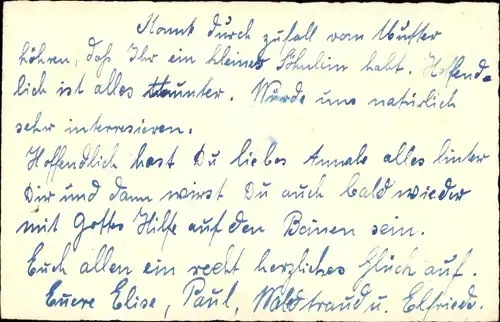 Konnt durch zufall von Mutter
höhren, daß Ihr ein kleines Söhnlein habt. Hoffend-
lich ist alles munter. Würde uns natürlich
sehr interresieren.
Hoffendlich hast Du liebes Annale alles hinter
Dir und dann wirst Du auch bald wieder
mit Gottes Hilfe auf den Bänen sein.
Euch allen ein recht herzliches Glück auf.
Euere Elise, Paul, Waldtraud u. Elfriede.